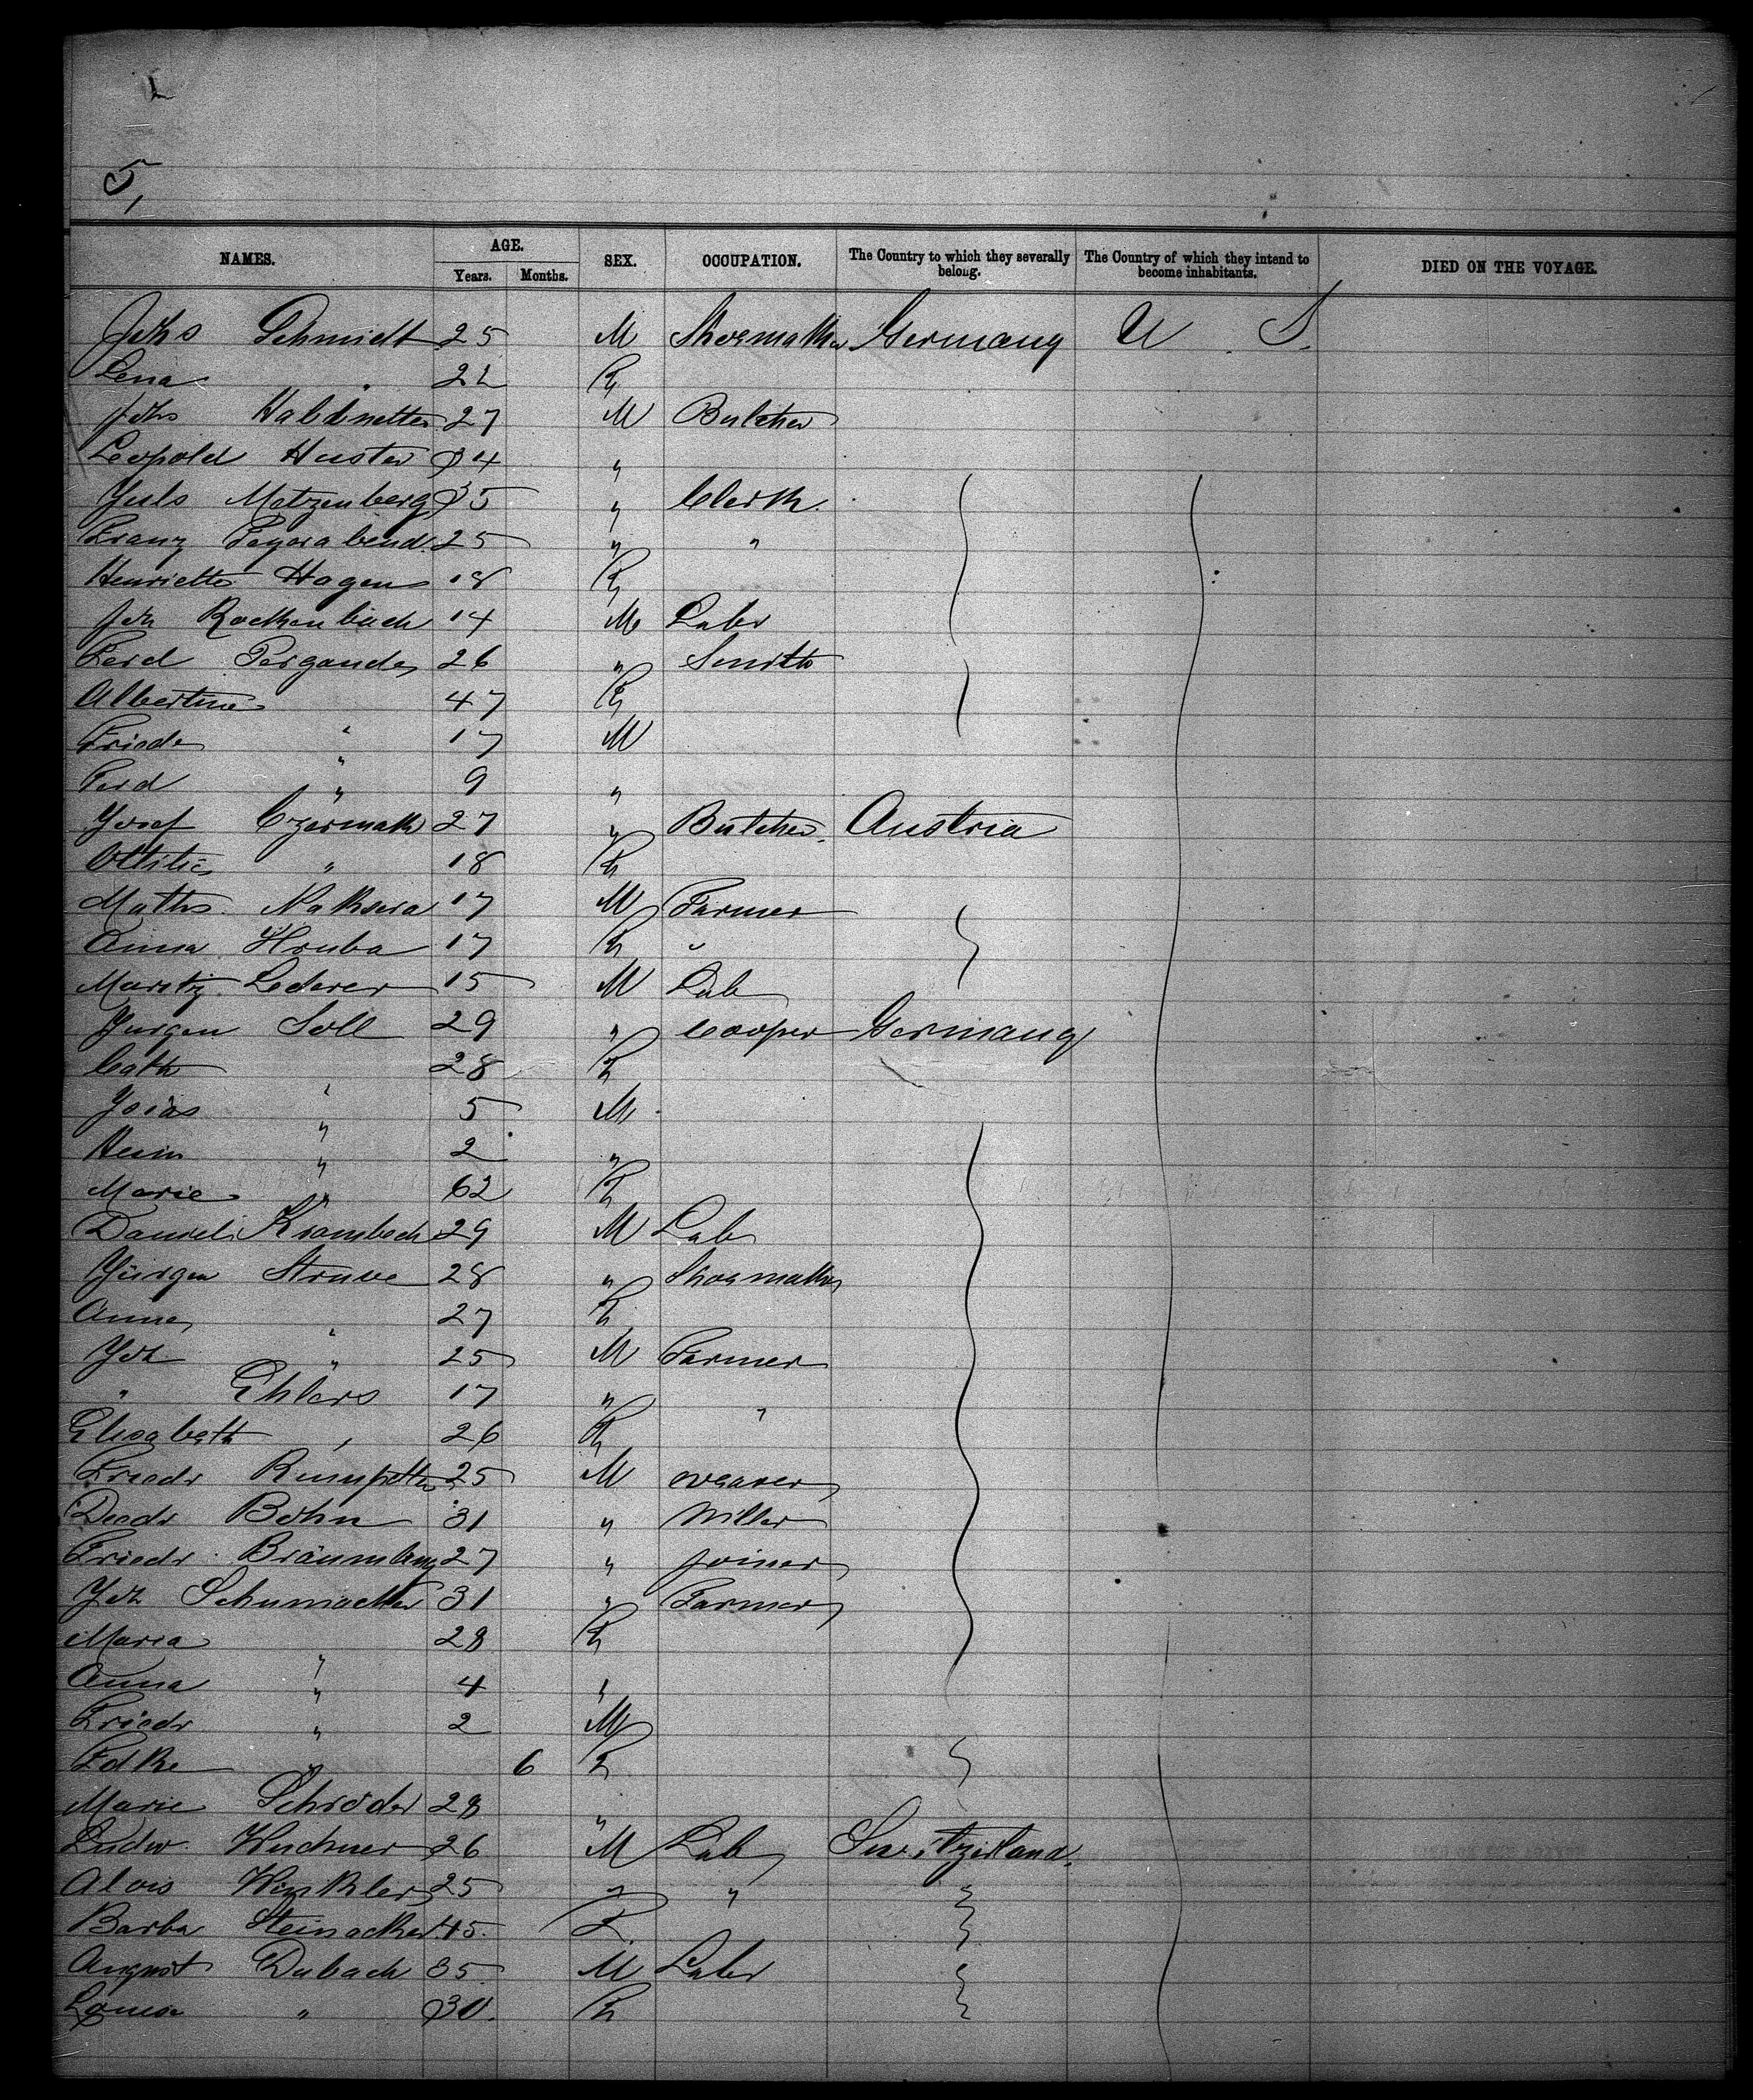 5,
NAMES. AGE. Years. Months. SEX. OCCUPATION. The Country to which they severally belong. The Country of which they intend to become inhabitants. DIED ON THE VOYAGE.
Johs Schmidt 25 M Shoemaker Germany U S.
Lena " 22 F
Johs 27 M Butcher
Leopold Huster 34 "
Juls Metzenberg 35 " Clerk.
Franz Feyerabend 25 " "
Henriette Hagen 18 F
Joh Rockenbach 14 M Labr
Ferd Pergande 26 " Smith
Albertine " 47 F
Friedr " 17 M
Ferd " 9 "
Josef Czermak 27 " Butcher. Austria
Ottilie " 18 F
Maths. 17 M Farmer
Anna Hruba 17 F "
Moritz Lederer 15 M Lab
Jurgen Soll 29 " Cooper Germany
Cath " 28 F
Joias " 5 M
Hein " 2 "
Marie " 62 F
Daniel Krombach 29 M Lab
Jürgen Struve 28 " Shoemaker
Anna " 27 F
Joh " 25 M Farmer
" Ehlers 17 " "
Elisabeth " 26 F
Friedr 25 M weaver
Diedr Böhn 31 " Miller
Friedr 27 " joiner
Joh Schumacher 31 " Farmer
Maria " 28 F
Anna " 4 "
Friedr " 2 M
Folke " 6 F
Marie Schröder 28 "
Ludw. 26 M Lab Switzerland.
Alois Winkler 25 " "
Barba Steinacker 45. F.
August Dubach 35 M Labr
Louise " 30. F